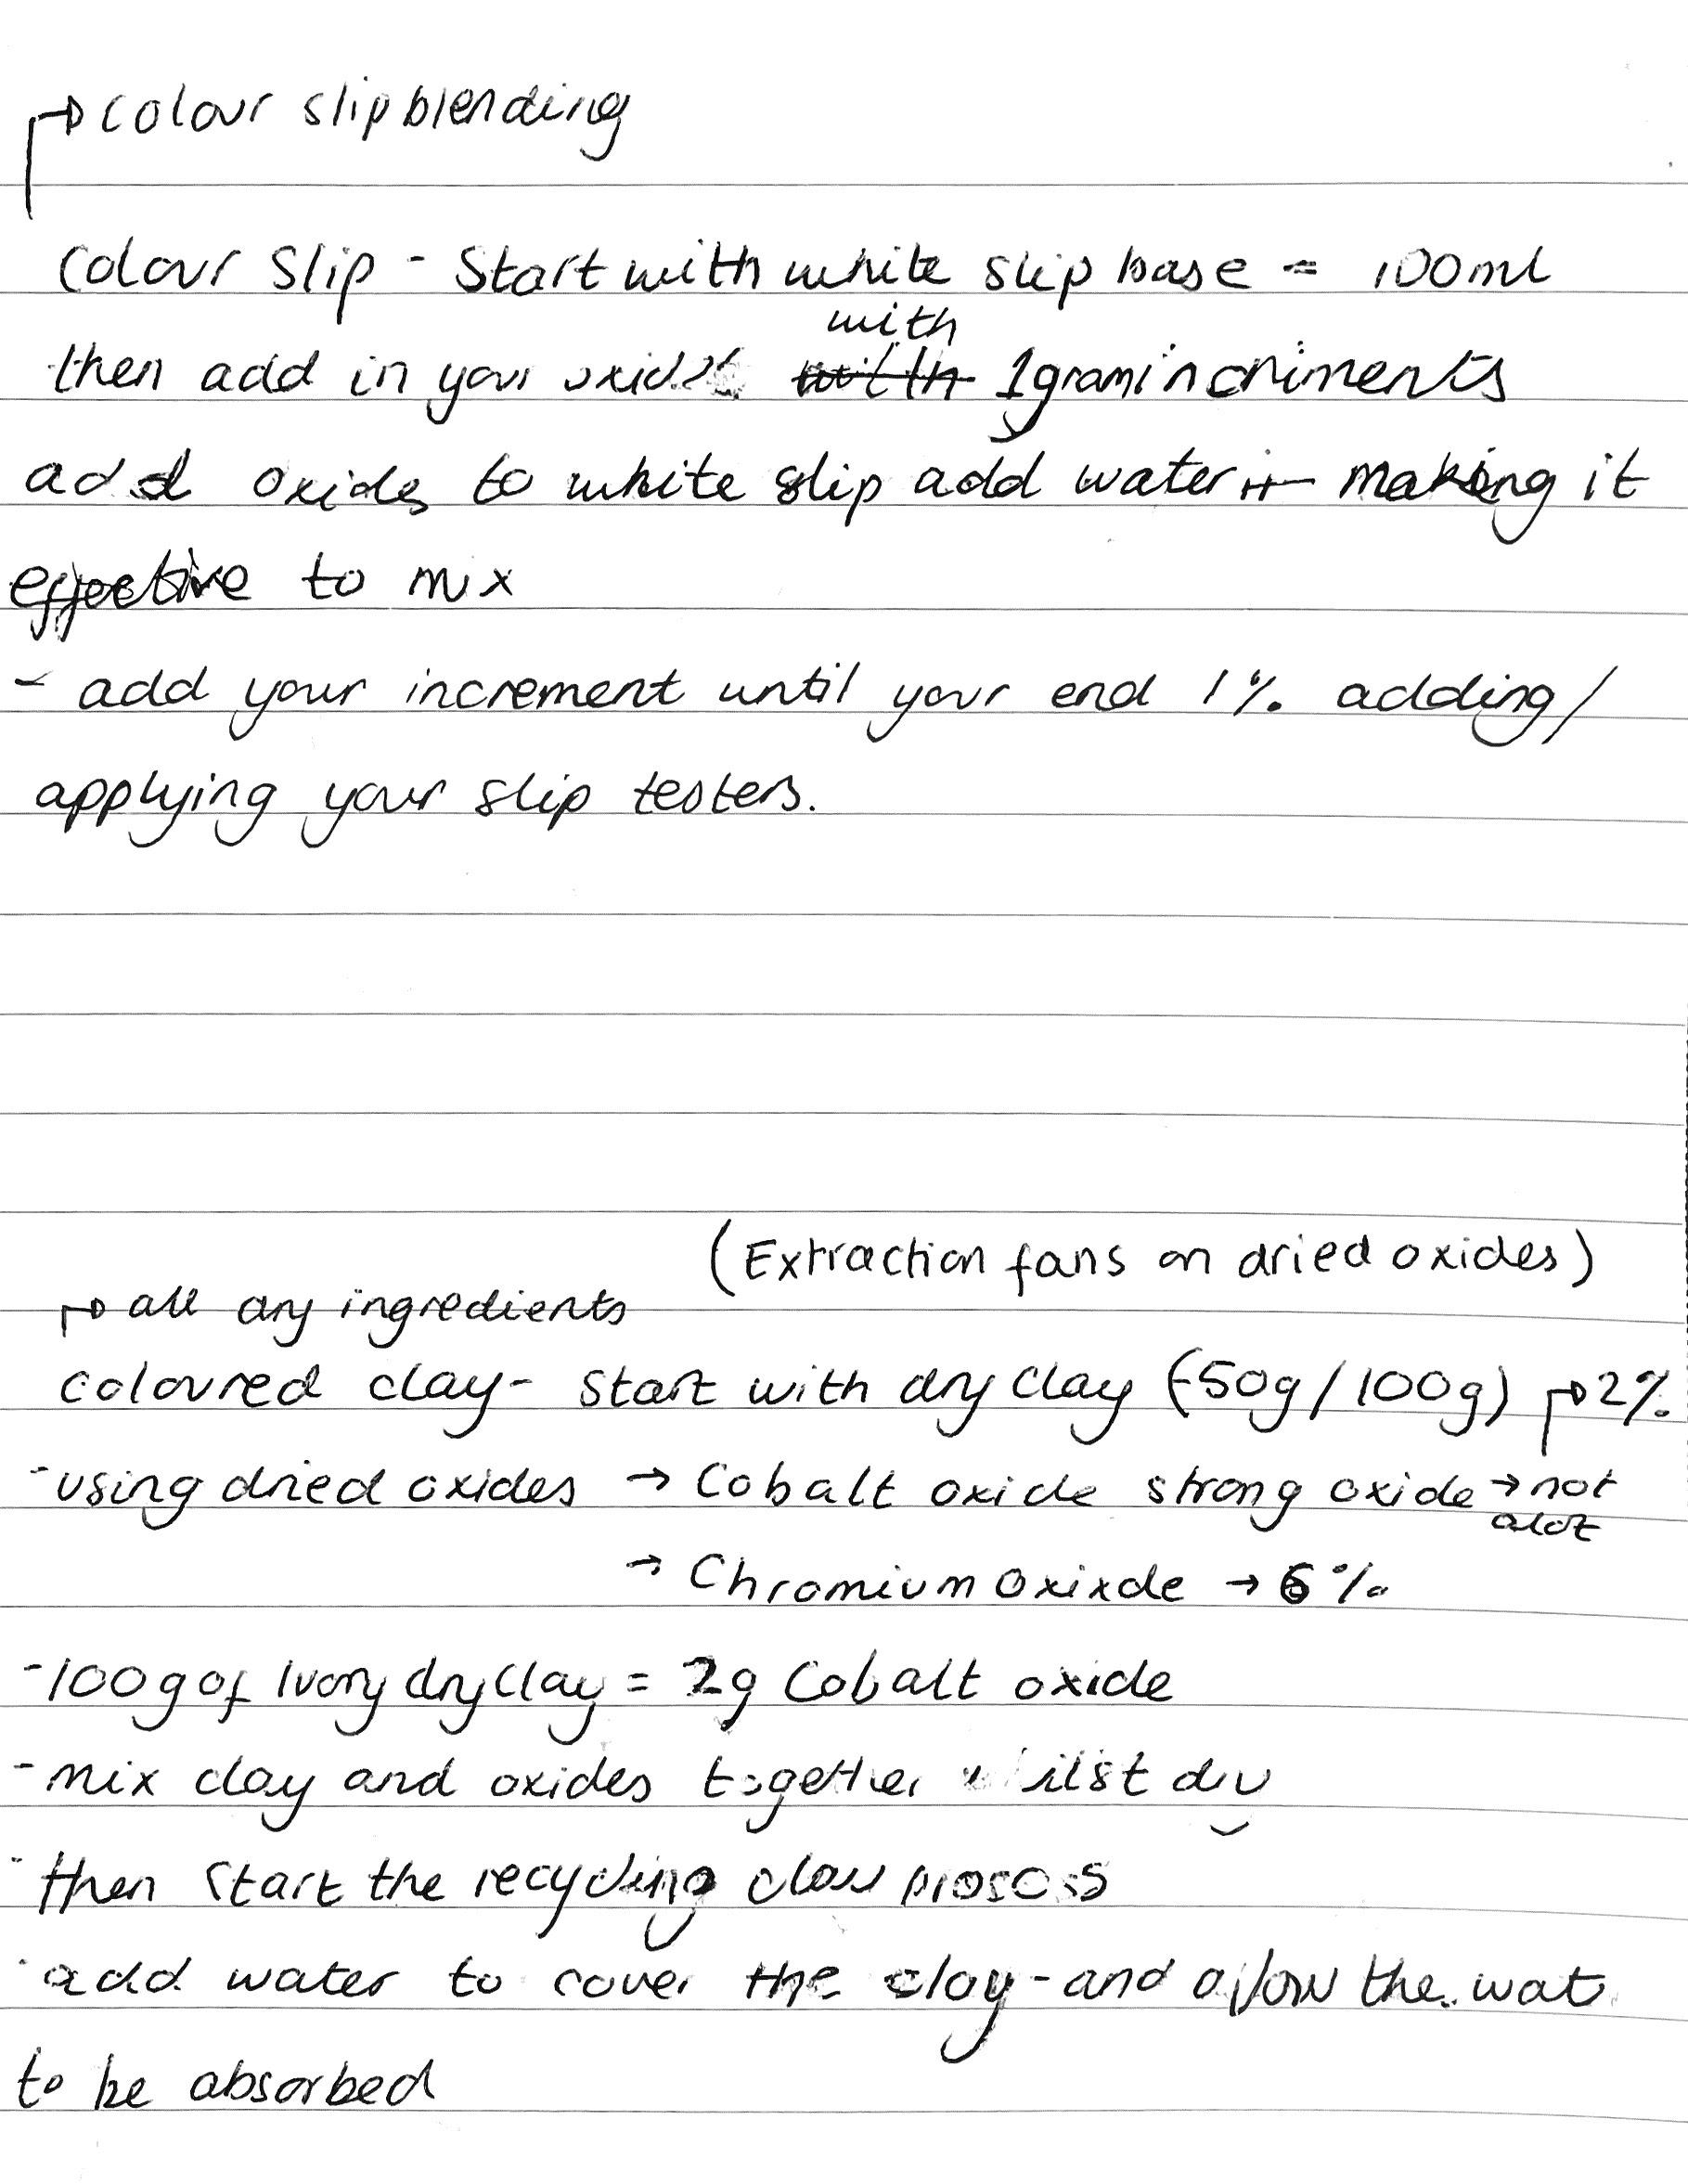 → colour slip blending
Colour Slip - Start with white slip base = 100ml
with
then add in your oxides with 1gram incriments
add oxides to white slip add water making it
effective to mix
- add your increment until your end 1% adding/
applying your slip testers.
(Extraction fans on dried oxides)
→ all dry ingredients
coloured clay - start with dry clay (50g/100g) → 2%
- using dried oxides → Cobalt oxide strong oxide → not
alot
→ Chromium Oxixde → 6%
- 100g of Ivory dry Clay = 2g Cobalt oxide
- mix clay and oxides together whilst dry
- then start the recycling clay prosess
- add water to cover the clay - and allow the wat
to be absorbed